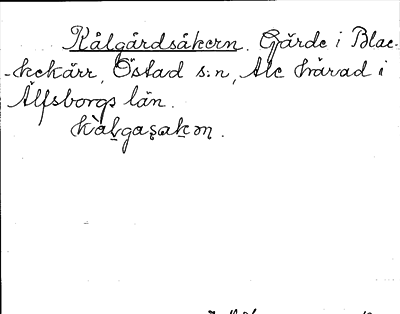 Kålgårdsåkern. Gärde i Blac-
-kekärr, Östad s:n, Ale härad i
Älfsborgs län.